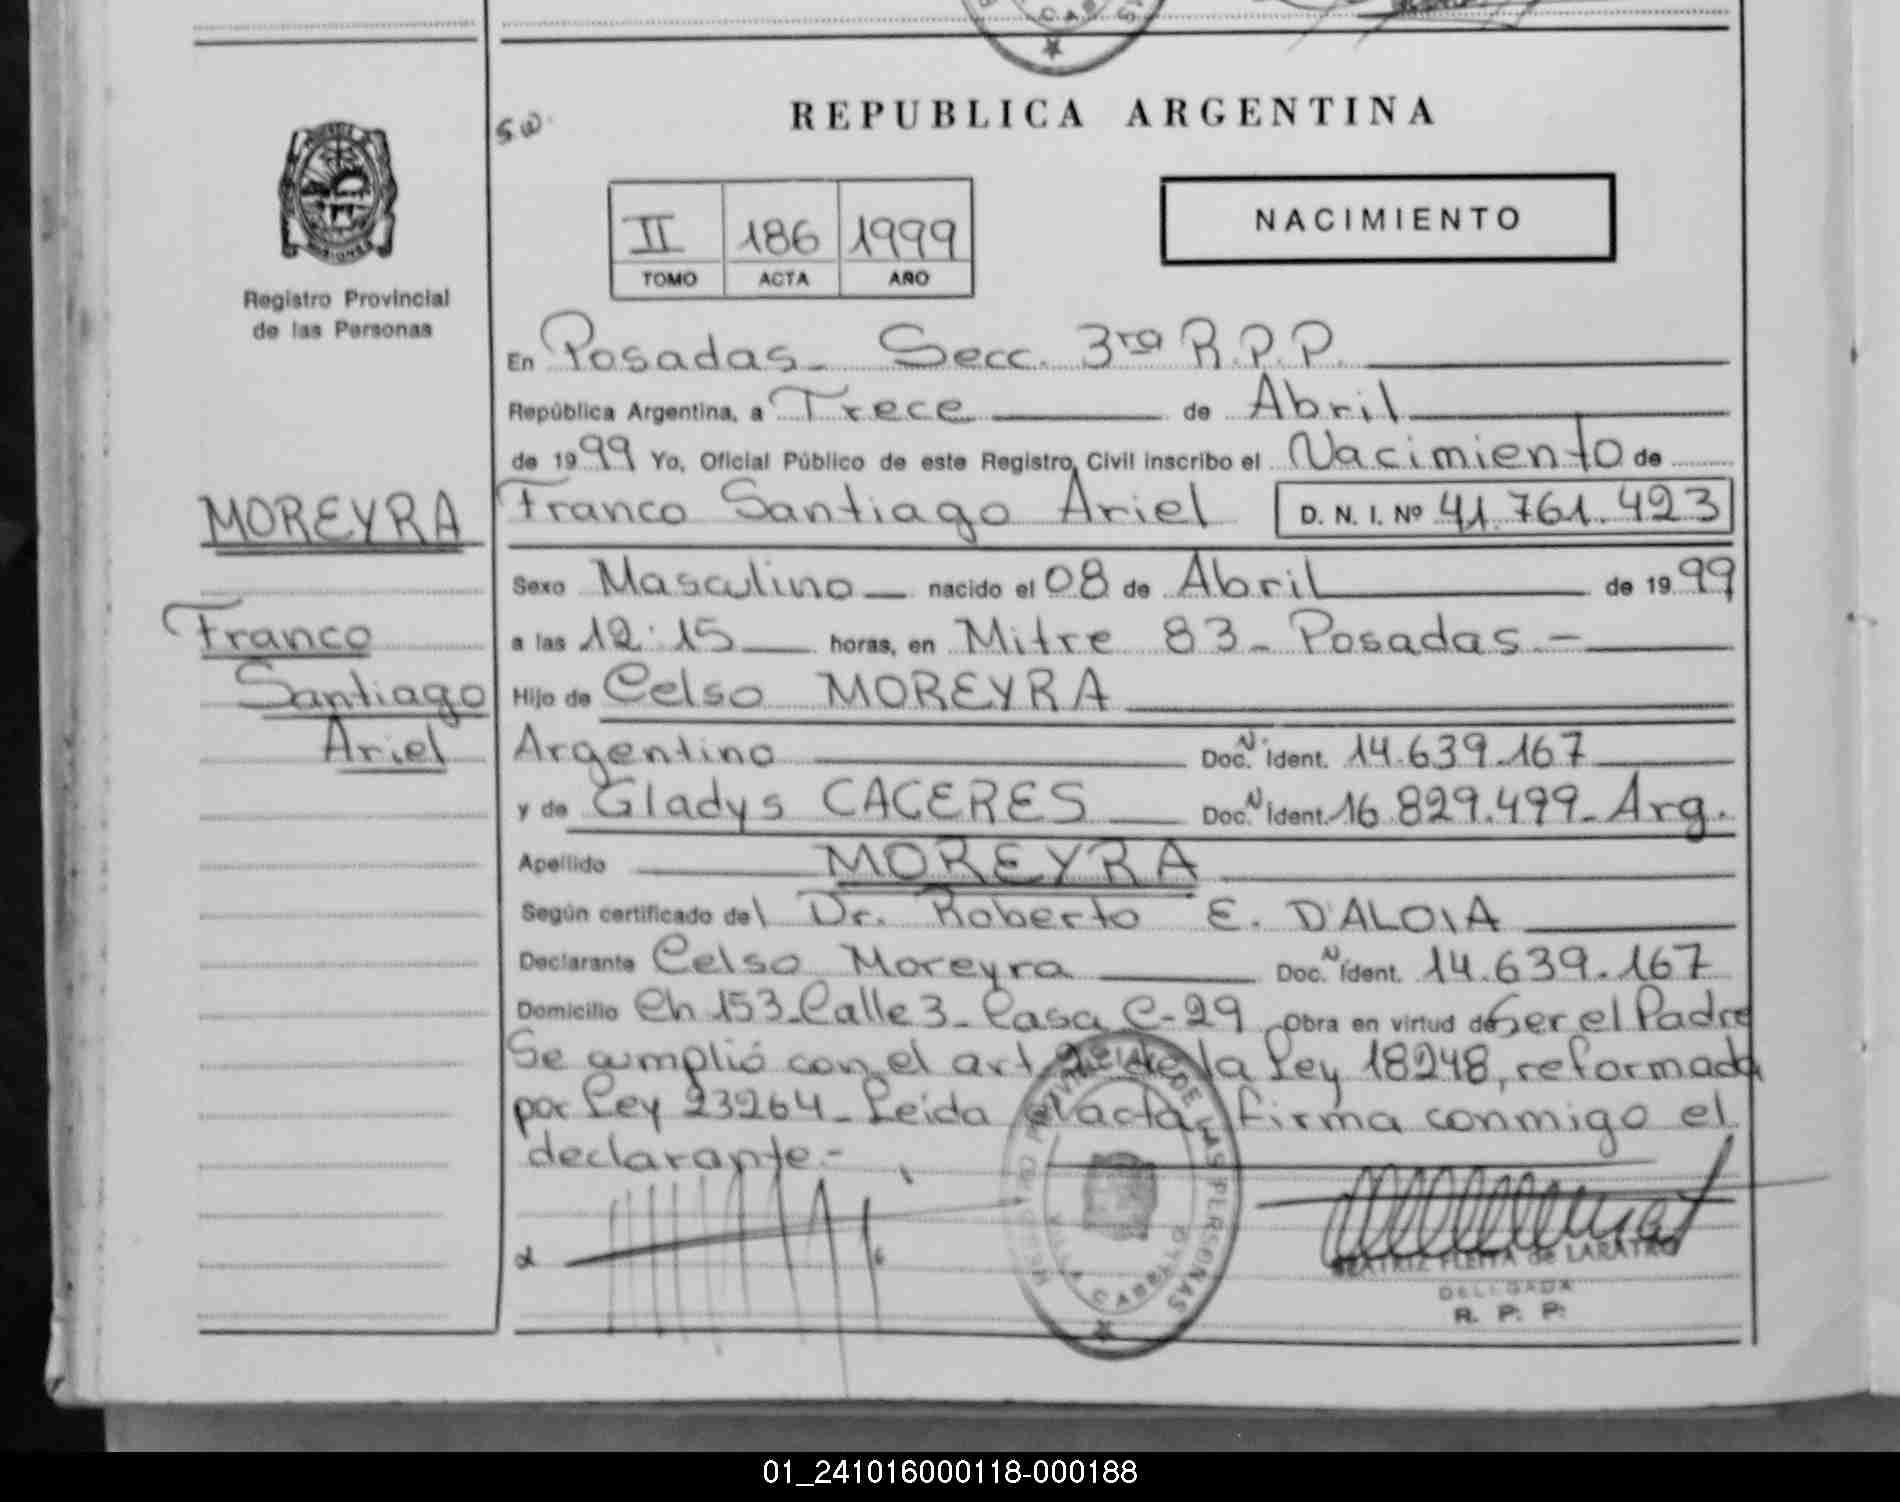 REPUBLICA ARGENTINA
Registro Provincial
de las Personas
II 186 1999
TOMO ACTA AÑO
NACIMIENTO
En Posadas - Secc. 3ra R.P.P.
República Argentina, a Trece de Abril
de 1999 Yo, Oficial Público de este Registro Civil inscribo el Nacimiento de
MOREYRA
Franco Santiago Ariel D. N. I. Nº 41.761.423
Sexo Masculino nacido el 08 de Abril de 1999
Franco
Santiago
Ariel
a las 12:15 horas, en Mitre 83 - Posadas.-
Hijo de Celso MOREYRA
Argentino Doc. N. Ident. 14.639.167
y de Gladys CACERES Doc. N Ident. 16.829.499 - Arg.
Apellido MOREYRA
Según certificado del Dr. Roberto E. D'ALOIA
Declarante Celso Moreyra Doc. N Ident. 14.639.167
Domicilio Ch 153 - Calle 3 - Casa C-29 Obra en virtud de Ser el Padre
Se cumplió con el art. 2 de la Ley 18248, reformada
por Ley 23264 - Leida el acta, firma conmigo el
declarante.-
REGISTRO PROVINCIAL DE LAS PERSONAS
VILLA CABELLO
BEATRIZ FLEITA de LARATRO
DELEGADA
R. P. P.
01_241016000118-000188